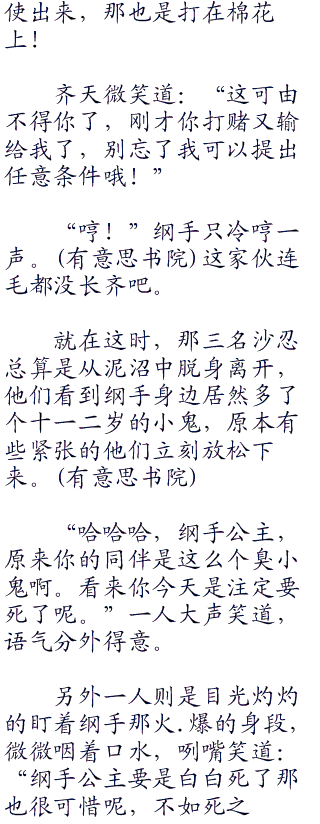 使出来，那也是打在棉花
上！
齐天微笑道：“这可由
不得你了，刚才你打赌又输
给我了，别忘了我可以提出
任意条件哦！”
“哼！”纲手只冷哼一
声。(有意思书院)这家伙连
毛都没长齐吧。
就在这时，那三名沙忍
总算是从泥沼中脱身离开，
他们看到纲手身边居然多了
个十一二岁的小鬼，原本有
些紧张的他们立刻放松下
来。(有意思书院)
“哈哈哈，纲手公主，
原来你的同伴是这么个臭小
鬼啊。看来你今天是注定要
死了呢。”一人大声笑道，
语气分外得意。
另外一人则是目光灼灼
的盯着纲手那火.爆的身段，
微微咽着口水，咧嘴笑道：
“纲手公主要是白白死了那
也很可惜呢，不如死之